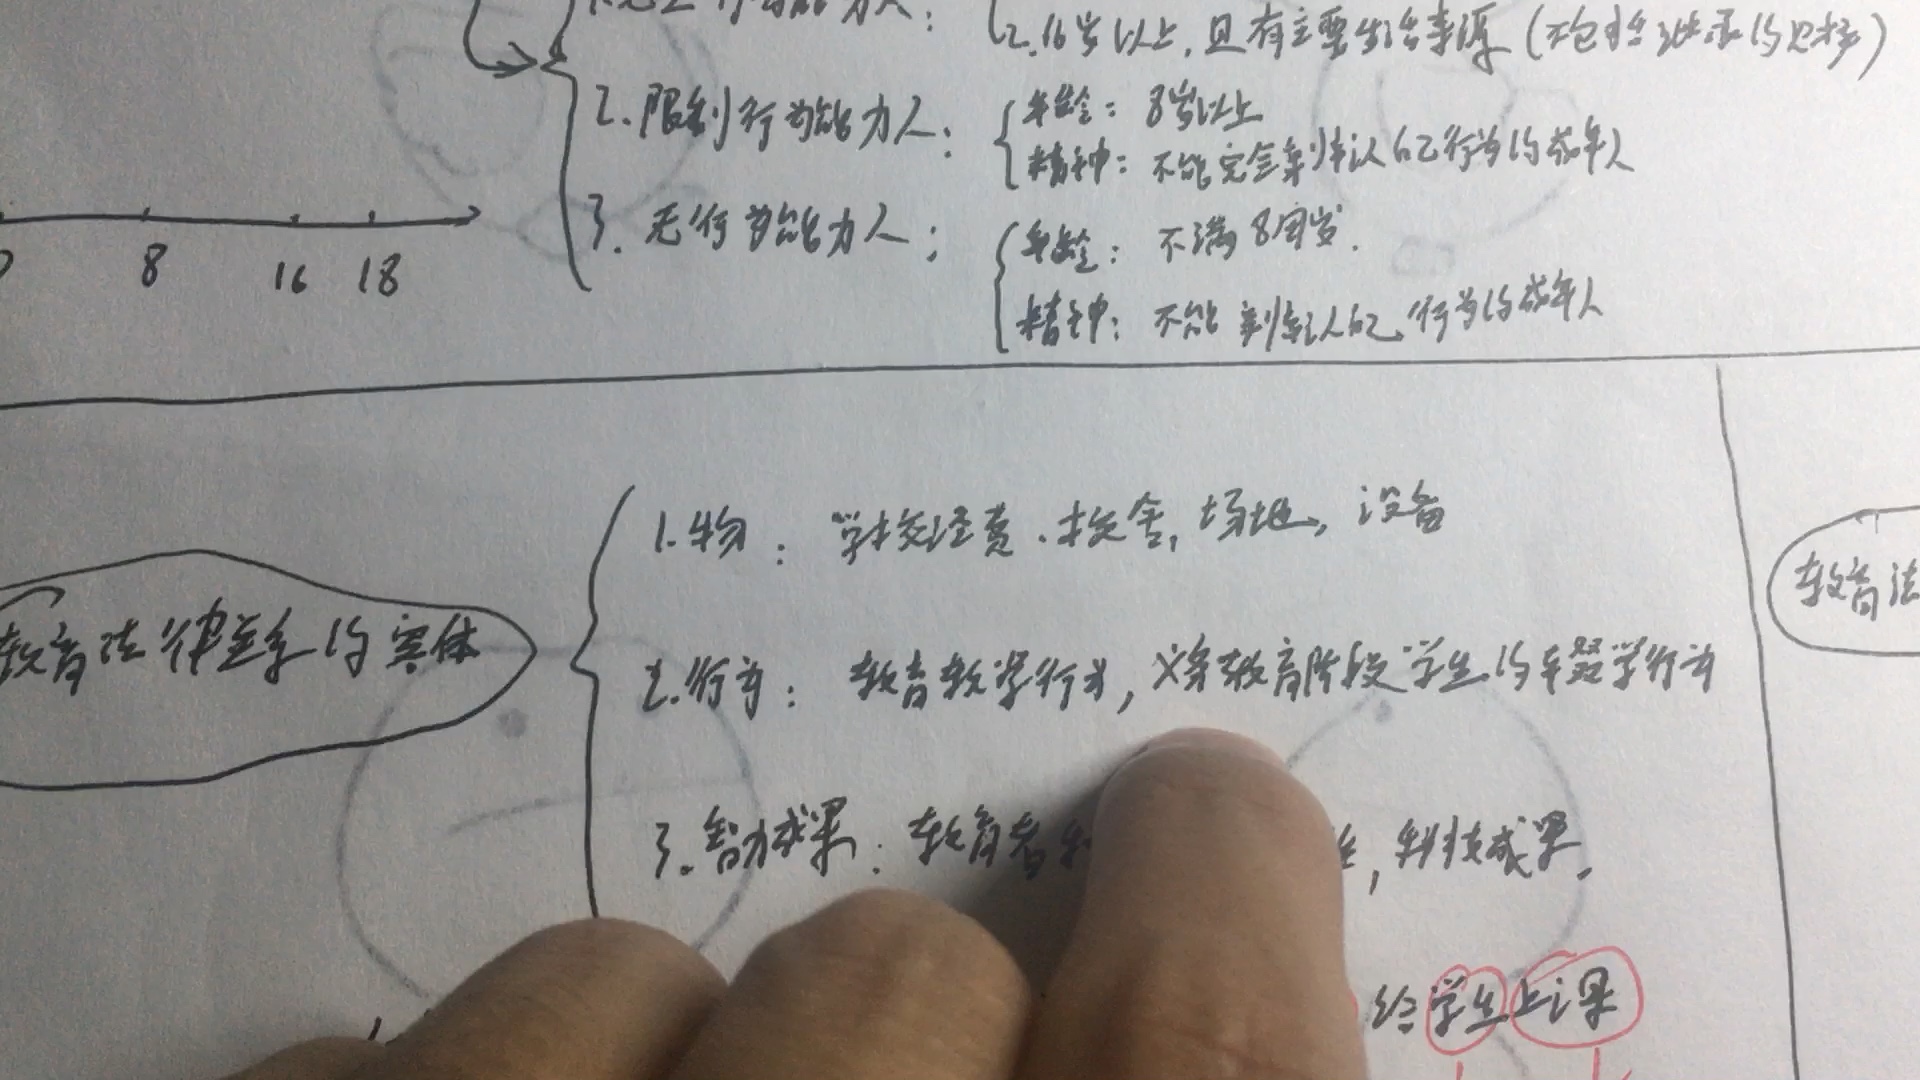 2.16岁以上,且有主要生活来源(不包括继承的见择)
2.限制行为能力人: 年龄: 8岁以上
精神: 不能完全辨认自己行为的成年人
3.无行为能力人: 年龄: 不满8周岁.
精神: 不能辨认自己行为的成年人
8 16 18
1.物: 学校经费.校舍,场地,设备
教育法律关系的客体
教育法
2.行为: 教育教学行为,义务教育阶段学生的辍学行为
3.智力成果: 教育者 ,科技成果.
给学生上课